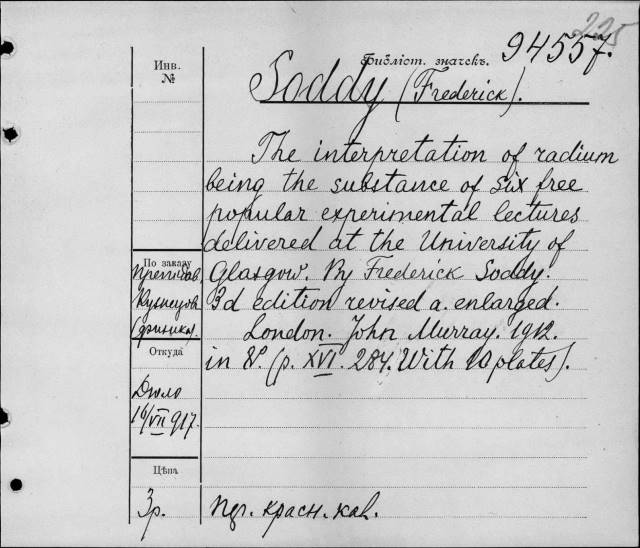 225
Инв. №
библіот. значекъ. 94557.
Soddy (Frederick).
The interpretation of radium
being the substance of six free
popular experimental lectures
delivered at the University of
Glasgow. By Frederick Soddy.
3d edition revised a. enlarged.
London. John Murray. 1912.
in 8°. (p. XVI. 284. With 10 plates).
По заказу
Кузнецова
(физика).
Откуда
16/VII 917.
Цѣна
3р.
красн.